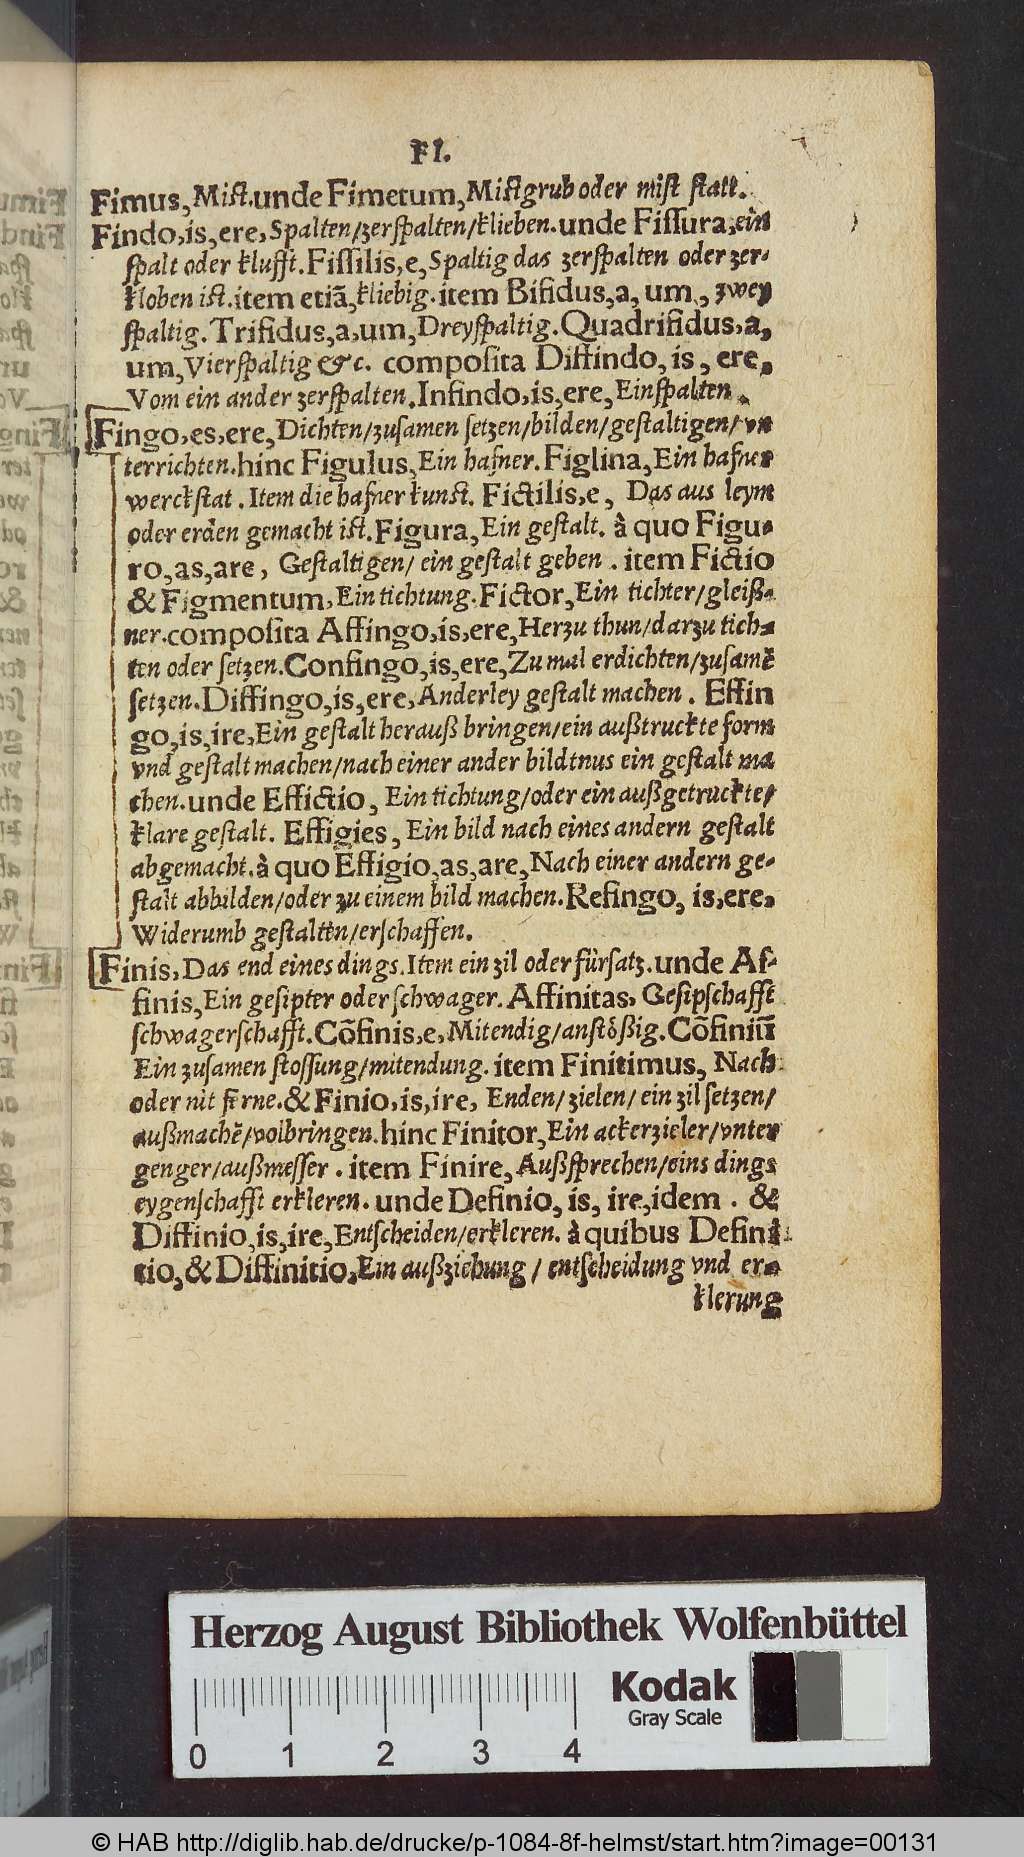 FI.
Fimus, Mist. unde Fimetum, Mistgrub oder mist statt.
Findo, is, ere, Spalten/zerspalten/klieben. unde Fissura, ein
spalt oder klufft. Fissilis, e, Spaltig das zerspalten oder zer-
kloben ist. item etiã, kliebig. item Bifidus, a, um, zwey
spaltig. Trifidus, a, um, Dreyspaltig. Quadrifidus, a,
um, Vierspaltig &c. composita Diffindo, is, ere,
Vom ein ander zerspalten. Infindo, is, ere, Einspalten.
Fingo, es, ere, Dichten/zusamen setzen/bilden/gestaltigen/vn
terrichten. hinc Figulus, Ein hafner. Figlina, Ein hafner
werckstat. Item die hafner kunst. Fictilis, e, Das aus leym
oder erden gemacht ist. Figura, Ein gestalt. à quo Figu-
ro, as, are, Gestaltigen/ ein gestalt geben. item Fictio
& Figmentum, Ein tichtung. Fictor, Ein tichter/gleiß-
ner. composita Affingo, is, ere, Herzu thun/darzu tich-
ten oder setzen. Confingo, is, ere, Zu mal erdichten/zusamẽ
setzen. Diffingo, is, ere, Anderley gestalt machen. Effin
go, is, ire, Ein gestalt herauß bringen/ein außtruckte form
vnd gestalt machen/nach einer ander bildtnus ein gestalt ma
chen. unde Effictio, Ein tichtung/oder ein außgetruckte/
klare gestalt. Effigies, Ein bild nach eines andern gestalt
abgemacht. à quo Effigio, as, are, Nach einer andern ge-
stalt abbilden/oder zu einem bild machen. Refingo, is, ere,
Widerumb gestalten/erschaffen.
Finis, Das end eines dings. Item ein zil oder fürsatz. unde Af-
finis, Ein gesipter oder schwager. Affinitas, Gesipschafft
schwagerschafft. Cõfinis, e, Mitendig/anstößig. Cõfiniũ
Ein zusamen stossung/mitendung. item Finitimus, Nach
oder nit ferne. & Finio, is, ire, Enden/zielen/ ein zil setzen/
außmachẽ/volbringen. hinc Finitor, Ein ackerzieler/vnter
genger/außmesser. item Finire, Außsprechen/eins dings
eygenschafft erkleren. unde Definio, is, ire, idem. &
Diffinio, is, ire, Entscheiden/erkleren. à quibus Defini
tio, & Diffinitio, Ein außziehung / entscheidung vnd er-
klerung
Herzog August Bibliothek Wolfenbüttel
Kodak
Gray Scale
0 1 2 3 4
© HAB http://diglib.hab.de/drucke/p-1084-8f-helmst/start.htm?image=00131